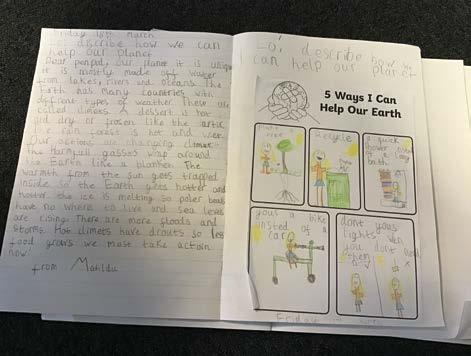 Friday 18th March
describe how we can
help our planet
Dear penpal, our planet it is uniqe
it is mostly made off water
from lakes, rivers and oceans. The
Earth has many countries with
diffrent types of weather. These are
called climets. A dessert is hot
and dry or frosen like the artic
the rain forest is hot and wet.
Our actions are changing climets
the harmfull gasses wrap around
the Earth like a blanket. The
warmth from the sun gets trapped
inside so the Earth gets hotter and
hotter the ice is melting so poler bears
have no where to live and sea levels
are rising. There are more floods and
storms. Hot climets have drouts so less
food grows we must take action
now!
from Matilda
Lo: describe how we
can help our planet
5 Ways I Can
Help Our Earth
Plant a
tree
Recycle
a quick
shower insted
of a long
bath
yous a bike
insted of a
car
dont yous
lights when
you dont need
them
Friday